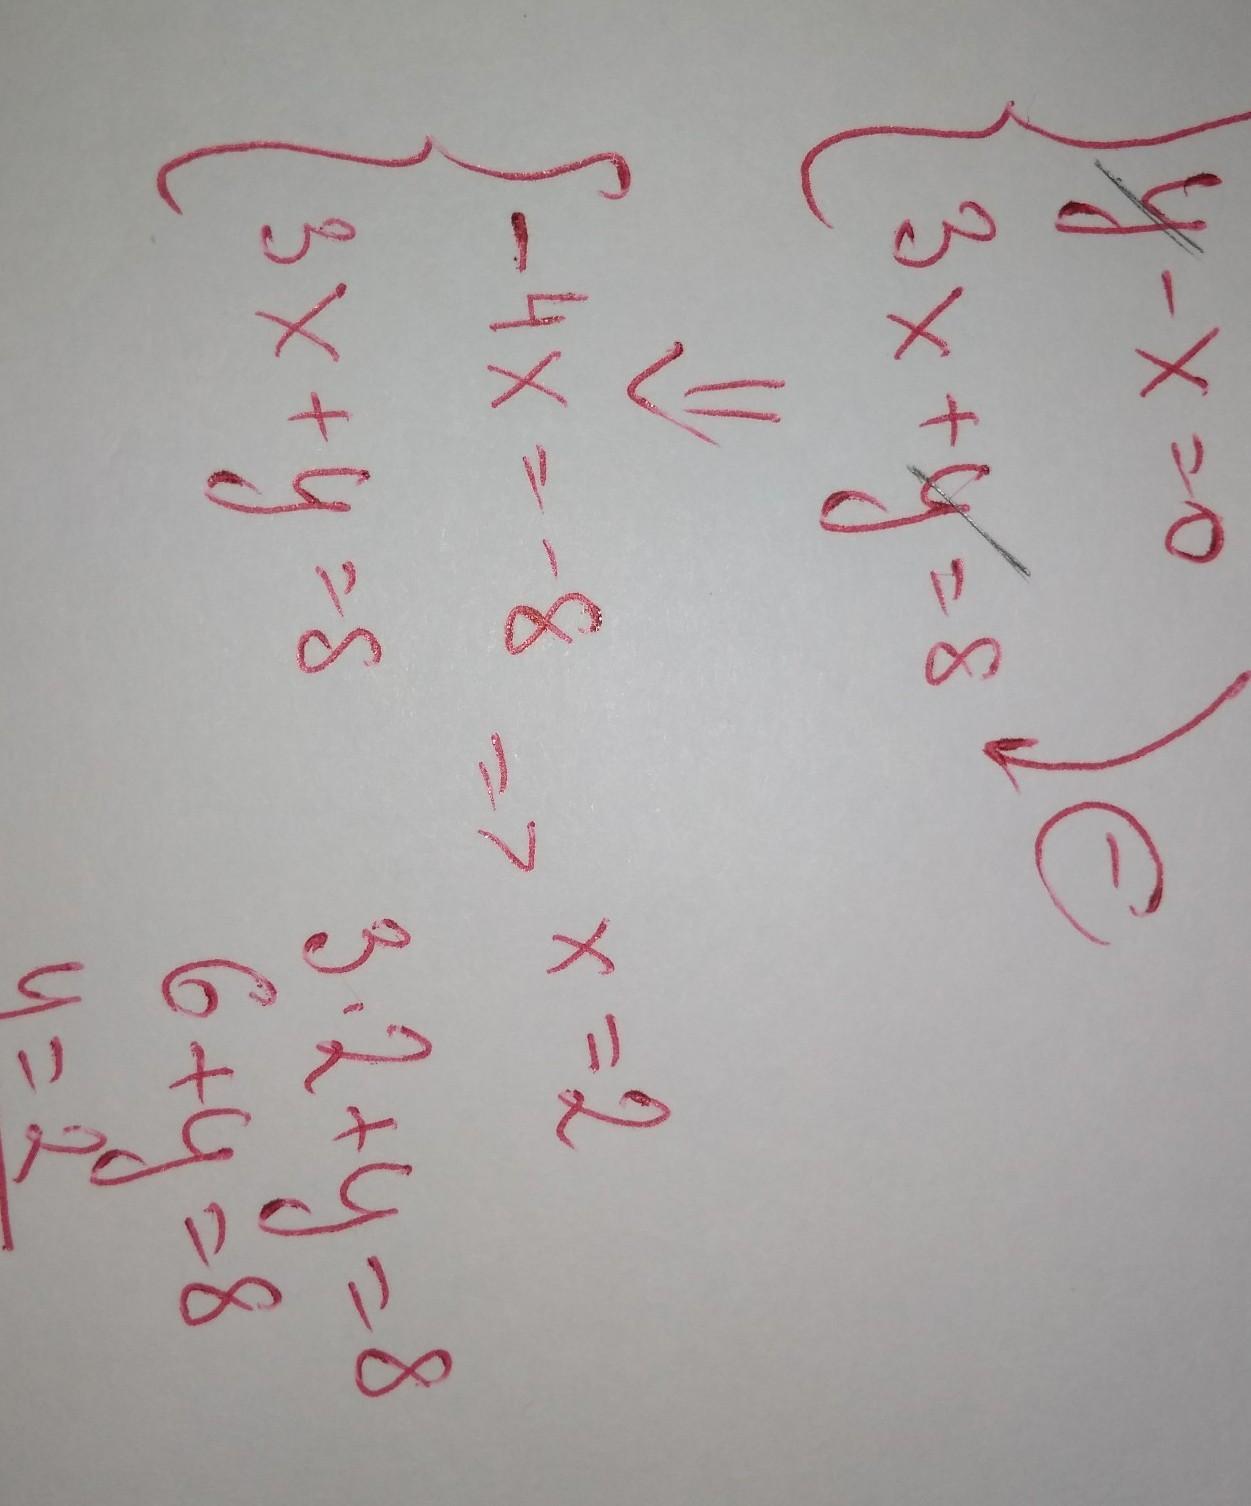 y - x = 0
3x + y = 8
(-)
=>
-4x = -8 => x = 2
3x + y = 8
3·2 + y = 8
6 + y = 8
y = 2